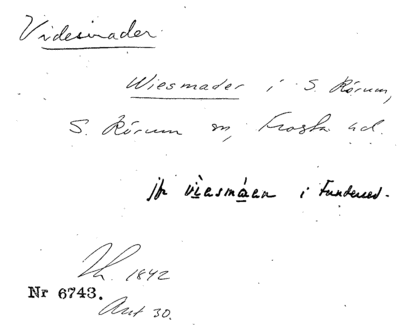 Videsmader
Wiesmader i S. Rörum,
S. Rörum sn, Frosta hd.
jfr viesmáen i Fundered.
Th. 1842
Nr 6743.
Ant 30.